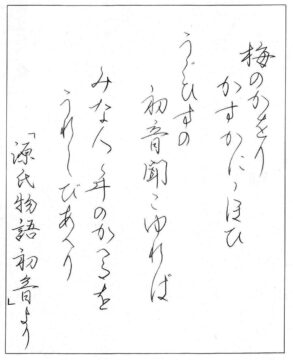 梅のかをり
かすかにゝほひ
うぐひすの
初音聞こゆれば
みな人年のかへるを
うれしびあへり
「源氏物語初音」より